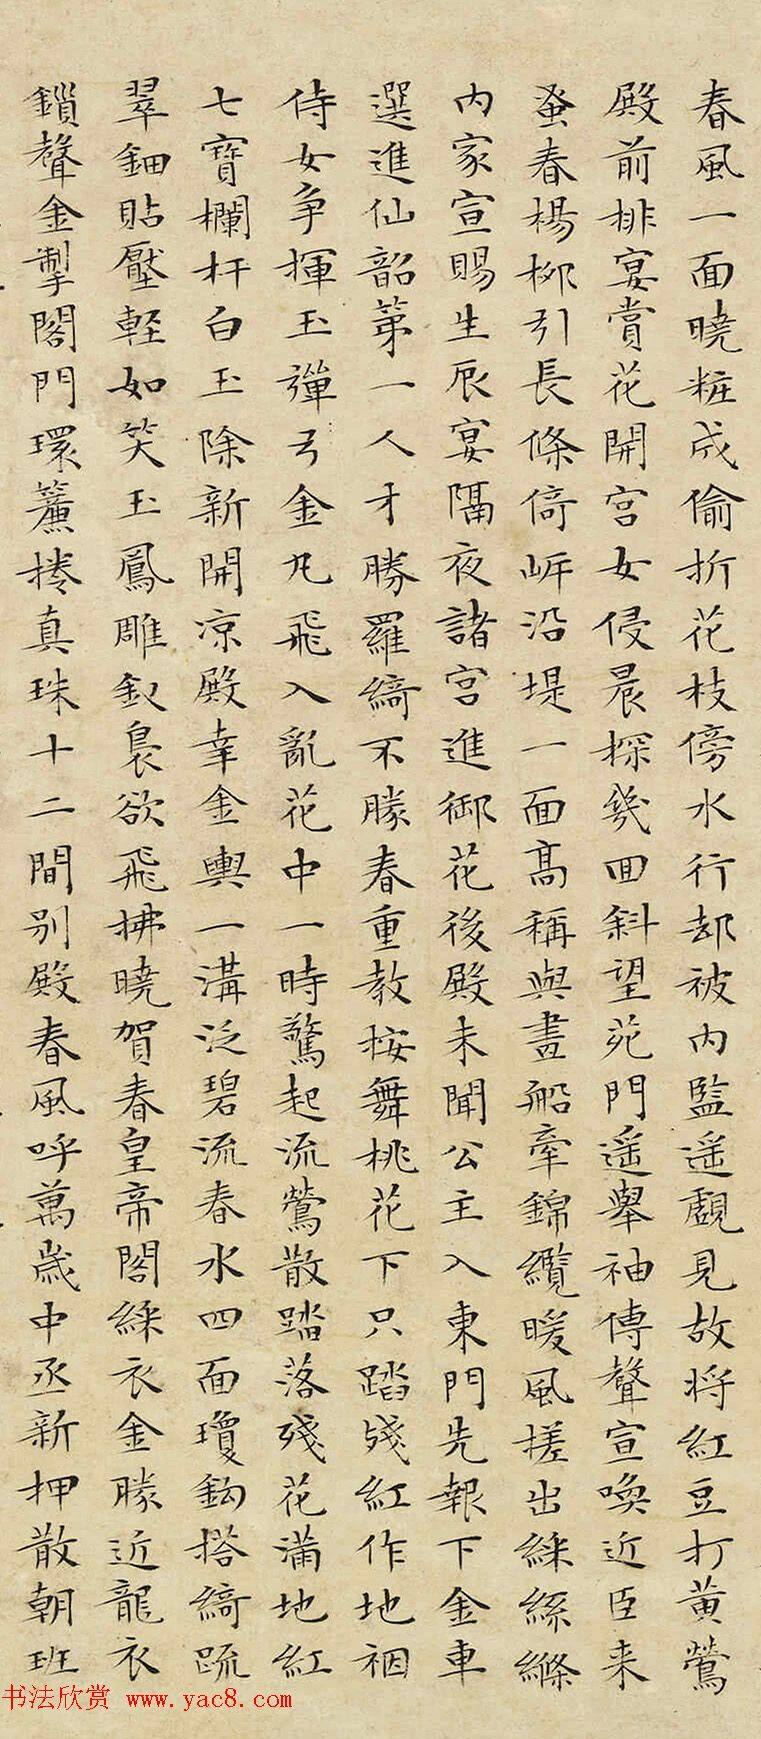 春風一面曉粧成偷折花枝傍水行却被內監遥覷見故將紅豆打黄鶯
殿前排宴賞花開宮女侵晨探幾回斜望苑門遥舉袖傳聲宣喚近臣来
蚤春楊柳引長條倚岍沿堤一面高稱與畫船牽錦纜暖風搓出綵絲縧
內家宣賜生辰宴隔夜諸宮進御花後殿未聞公主入東門先報下金車
選進仙韶第一人才勝羅綺不勝春重教按舞桃花下只踏殘紅作地裀
侍女爭揮玉彈弓金丸飛入亂花中一時驚起流鶯散踏落殘花滿地紅
七寶欄杆白玉除新開凉殿幸金輿一溝泛碧流春水四面瓊鈎搭綺疏
翠鈿貼靨輕如笑玉鳳雕釵裊欲飛拂曉賀春皇帝閣綵衣金勝近龍衣
鎖聲金掣閤門環簾捲真珠十二間別殿春風呼萬歲中丞新押散朝班
书法欣赏 www.yac8.com